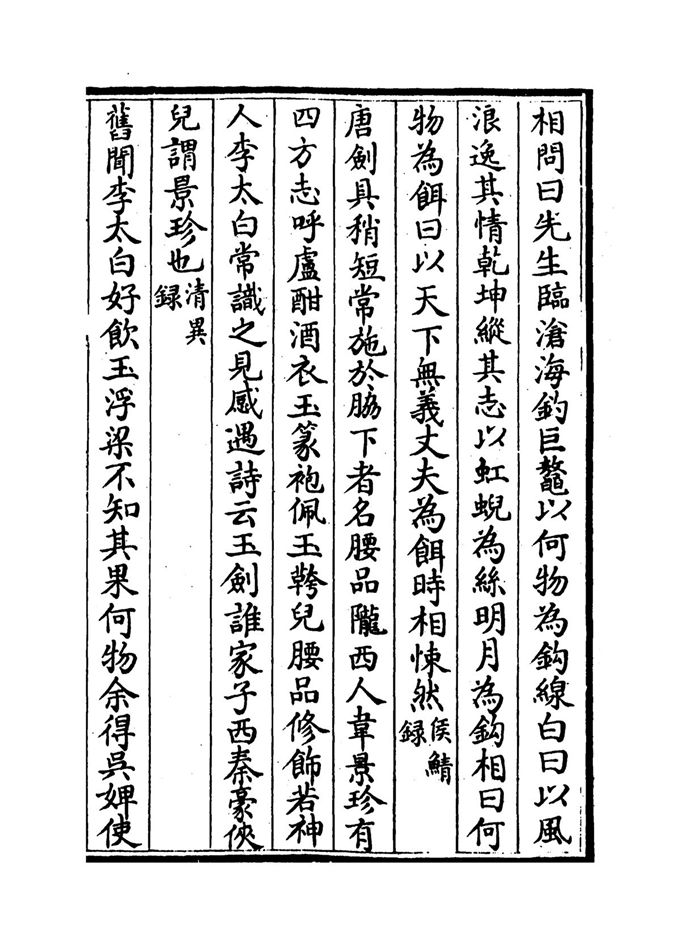 相問曰先生臨滄海釣巨鼇以何物為鈎線白曰以風
浪逸其情乾坤縱其志以虹蜺為絲明月為鈎相曰何
物為餌曰以天下無義丈夫為餌時相悚然侯鯖錄
唐劍具稍短常施於脇下者名腰品隴西人韋景珍有
四方志呼盧酣酒衣玉篆袍佩玉鞶兒腰品修飾若神
人李太白常識之見感遇詩云玉劍誰家子西秦豪俠
兒謂景珍也清異錄
舊聞李太白好飲玉浮梁不知其果何物余得吳婢使